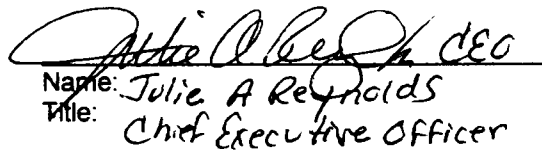 Julie A Reynolds CEO
Name: Julie A Reynolds
Title:
Chief Executive Officer